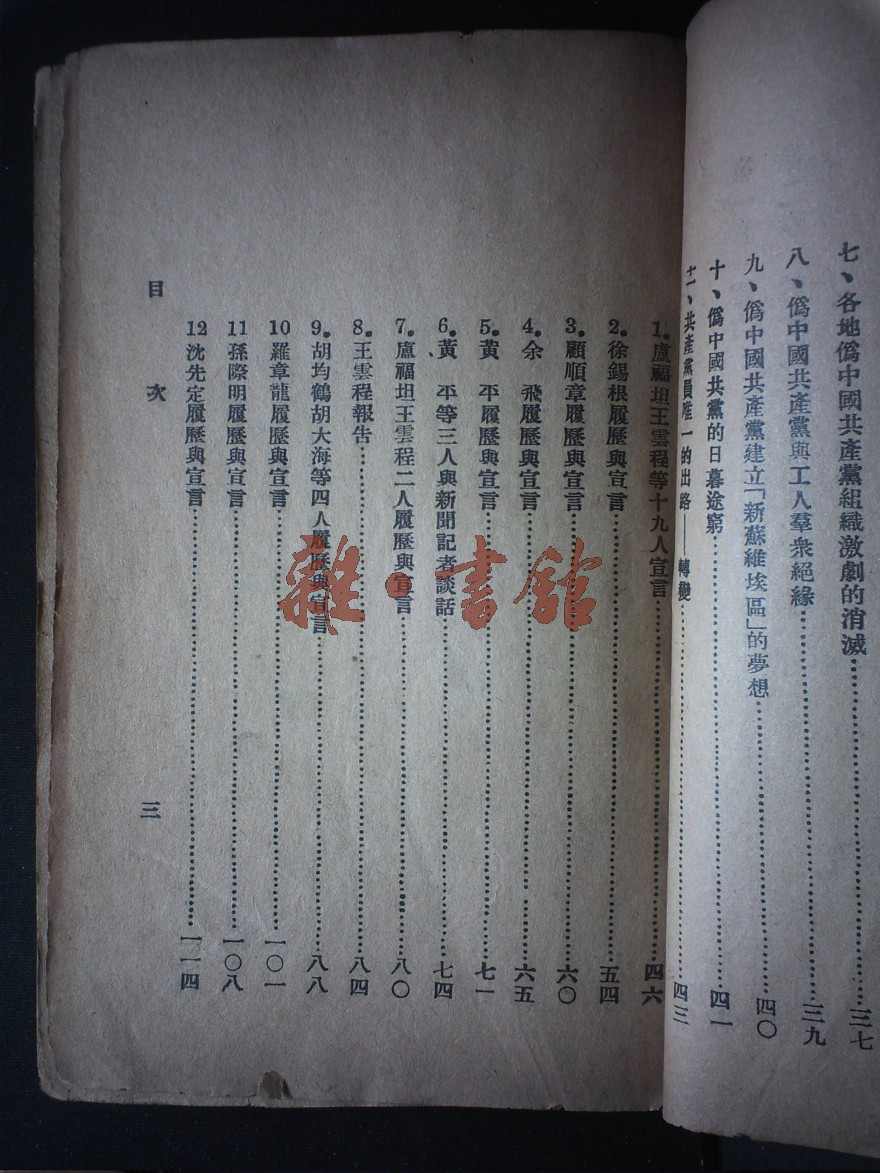 七、各地僞中國共產黨組織激劇的消滅……三七
八、僞中國共產黨與工人羣衆絕緣……三九
九、僞中國共產黨建立「新蘇維埃區」的夢想……四〇
十、僞中國共黨的日暮途窮……四一
十一、共產黨員唯一的出路——轉變……四三
1.盧福坦王雲程等十九人宣言……四六
2.徐錫根履歷與宣言……五四
3.顧順章履歷與宣言……六〇
4.余 飛履歷與宣言……六五
5.黃 平履歷與宣言……七一
6.黃 平等三人與新聞記者談話……七四
7.盧福坦王雲程二人履歷與宣言……八〇
8.王雲程報告……八四
9.胡均鶴胡大海等四人履歷與宣言……八八
10羅章龍履歷與宣言……一〇一
11孫際明履歷與宣言……一〇八
12沈先定履歷與宣言……一一四
目 次 三
雜·書館